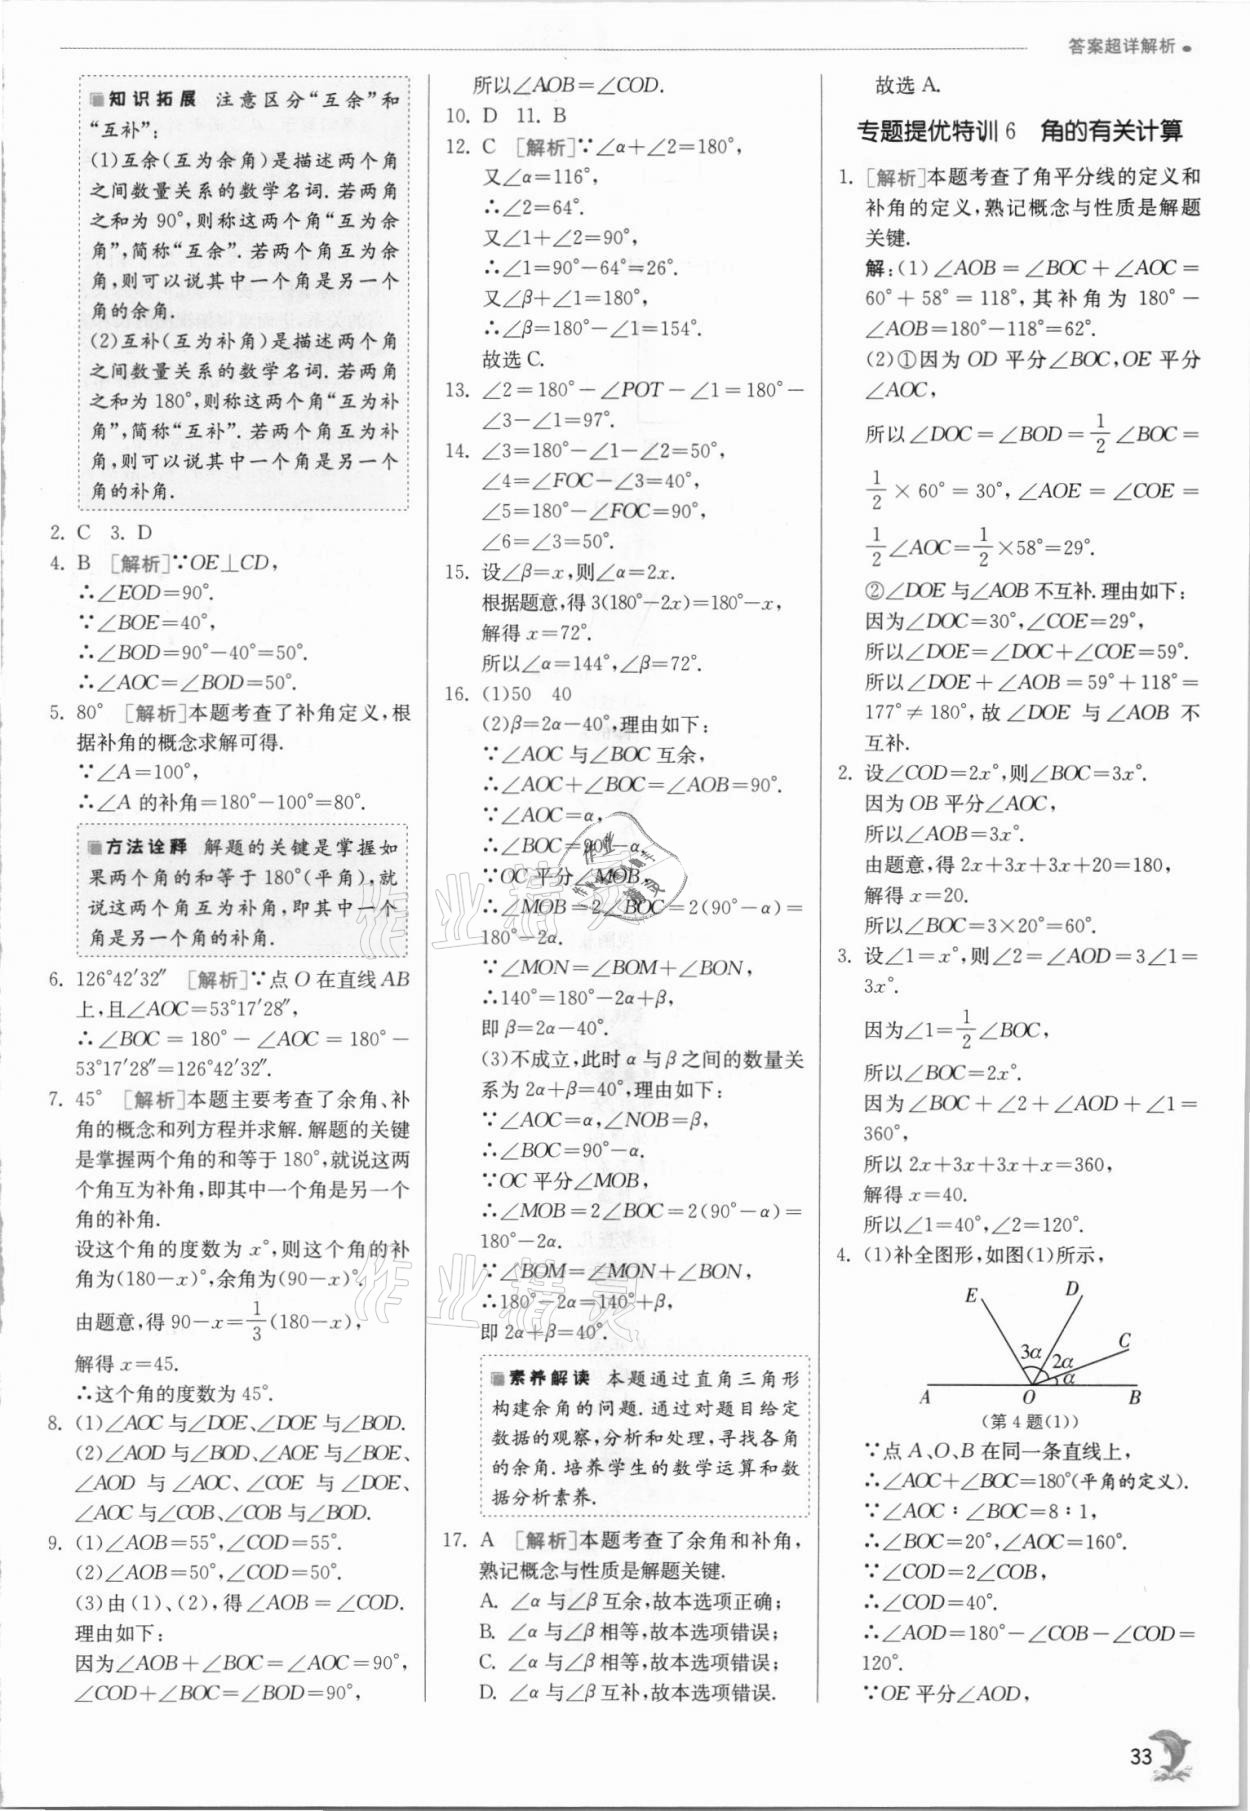 答案超详解析
知识拓展 注意区分“互余”和
“互补”:
(1)互余(互为余角)是描述两个角
之间数量关系的数学名词. 若两角
之和为 90°,则称这两个角“互为余
角”,简称“互余”. 若两个角互为余
角,则可以说其中一个角是另一个
角的余角.
(2)互补(互为补角)是描述两个角
之间数量关系的数学名词. 若两角
之和为 180°,则称这两个角“互为补
角”,简称“互补”. 若两个角互为补
角,则可以说其中一个角是另一个
角的补角.
2. C 3. D
4. B [解析]∵OE⊥CD,
∴∠EOD=90°.
∵∠BOE=40°,
∴∠BOD=90°−40°=50°.
∴∠AOC=∠BOD=50°.
5. 80° [解析]本题考查了补角定义,根
据补角的概念求解可得.
∵∠A=100°,
∴∠A 的补角=180°−100°=80°.
方法诠释 解题的关键是掌握如
果两个角的和等于 180°(平角),就
说这两个角互为补角,即其中一个
角是另一个角的补角.
6. 126°42′32″ [解析]∵点 O 在直线 AB
上,且∠AOC=53°17′28″,
∴∠BOC = 180° − ∠AOC = 180° −
53°17′28″=126°42′32″.
7. 45° [解析]本题主要考查了余角、补
角的概念和列方程并求解. 解题的关键
是掌握两个角的和等于 180°,就说这两
个角互为补角,即其中一个角是另一个
角的补角.
设这个角的度数为 x°,则这个角的补
角为(180−x)°,余角为(90−x)°.
由题意,得 90−x=1/3(180−x),
解得 x=45.
∴这个角的度数为 45°.
8. (1)∠AOC 与∠DOE、∠DOE 与∠BOD.
(2)∠AOD 与∠BOD、∠AOE 与∠BOE、
∠AOD 与 ∠AOC、∠COE 与 ∠DOE、
∠AOC 与∠COB、∠COB 与∠BOD.
9. (1)∠AOB=55°,∠COD=55°.
(2)∠AOB=50°,∠COD=50°.
(3)由(1)、(2),得∠AOB=∠COD.
理由如下:
因为∠AOB+∠BOC=∠AOC=90°,
∠COD+∠BOC=∠BOD=90°,
所以∠AOB=∠COD.
10. D 11. B
12. C [解析]∵∠α+∠2=180°,
又∠α=116°,
∴∠2=64°.
又∠1+∠2=90°,
∴∠1=90°−64°=26°.
又∠β+∠1=180°,
∴∠β=180°−∠1=154°.
故选 C.
13. ∠2=180°−∠POT−∠1=180°−
∠3−∠1=97°.
14. ∠3=180°−∠1−∠2=50°,
∠4=∠FOC−∠3=40°,
∠5=180°−∠FOC=90°,
∠6=∠3=50°.
15. 设∠β=x,则∠α=2x.
根据题意,得 3(180°−2x)=180°−x,
解得 x=72°.
所以∠α=144°,∠β=72°.
16. (1)50 40
(2)β=2α−40°,理由如下:
∵∠AOC 与∠BOC 互余,
∴∠AOC+∠BOC=∠AOB=90°.
∵∠AOC=α,
∴∠BOC=90°−α,
∵OC 平分∠MOB,
∴∠MOB=2∠BOC=2(90°−α)=
180°−2α.
∵∠MON=∠BOM+∠BON,
∴140°=180°−2α+β,
即 β=2α−40°.
(3)不成立,此时 α 与 β 之间的数量关
系为 2α+β=40°,理由如下:
∵∠AOC=α,∠NOB=β,
∴∠BOC=90°−α.
∵OC 平分∠MOB,
∴∠MOB=2∠BOC=2(90°−α)=
180°−2α.
∵∠BOM=∠MON+∠BON,
∴180°−2α=140°+β,
即 2α+β=40°.
素养解读 本题通过直角三角形
构建余角的问题. 通过对题目给定
数据的观察,分析和处理,寻找各角
的余角. 培养学生的数学运算和数
据分析素养.
17. A [解析]本题考查了余角和补角,
熟记概念与性质是解题关键.
A. ∠α 与∠β 互余,故本选项正确;
B. ∠α 与∠β 相等,故本选项错误;
C. ∠α 与∠β 相等,故本选项错误;
D. ∠α 与∠β 互补,故本选项错误.
故选 A.
专题提优特训 6 角的有关计算
1. [解析]本题考查了角平分线的定义和
补角的定义,熟记概念与性质是解题
关键.
解:(1)∠AOB=∠BOC+∠AOC=
60°+58°=118°,其补角为 180°−
∠AOB=180°−118°=62°.
(2)①因为 OD 平分∠BOC,OE 平分
∠AOC,
所以∠DOC=∠BOD=1/2∠BOC=
1/2×60°=30°,∠AOE=∠COE=
1/2∠AOC=1/2×58°=29°.
②∠DOE 与∠AOB 不互补. 理由如下:
因为∠DOC=30°,∠COE=29°,
所以∠DOE=∠DOC+∠COE=59°.
所以∠DOE+∠AOB=59°+118°=
177°≠180°,故∠DOE 与∠AOB 不
互补.
2. 设∠COD=2x°,则∠BOC=3x°.
因为 OB 平分∠AOC,
所以∠AOB=3x°.
由题意,得 2x+3x+3x+20=180,
解得 x=20.
所以∠BOC=3×20°=60°.
3. 设∠1=x°,则∠2=∠AOD=3∠1=
3x°.
因为∠1=1/2∠BOC,
所以∠BOC=2x°.
因为∠BOC+∠2+∠AOD+∠1=
360°,
所以 2x+3x+3x+x=360,
解得 x=40.
所以∠1=40°,∠2=120°.
4. (1)补全图形,如图(1)所示,
E D
C
3α 2α
α
A O B
(第 4 题(1))
∵点 A、O、B 在同一条直线上,
∴∠AOC+∠BOC=180°(平角的定义).
∵∠AOC∶∠BOC=8∶1,
∴∠BOC=20°,∠AOC=160°.
∵∠COD=2∠COB,
∴∠COD=40°.
∴∠AOD=180°−∠COB−∠COD=
120°.
∵OE 平分∠AOD,
33
作业精灵
作业精灵